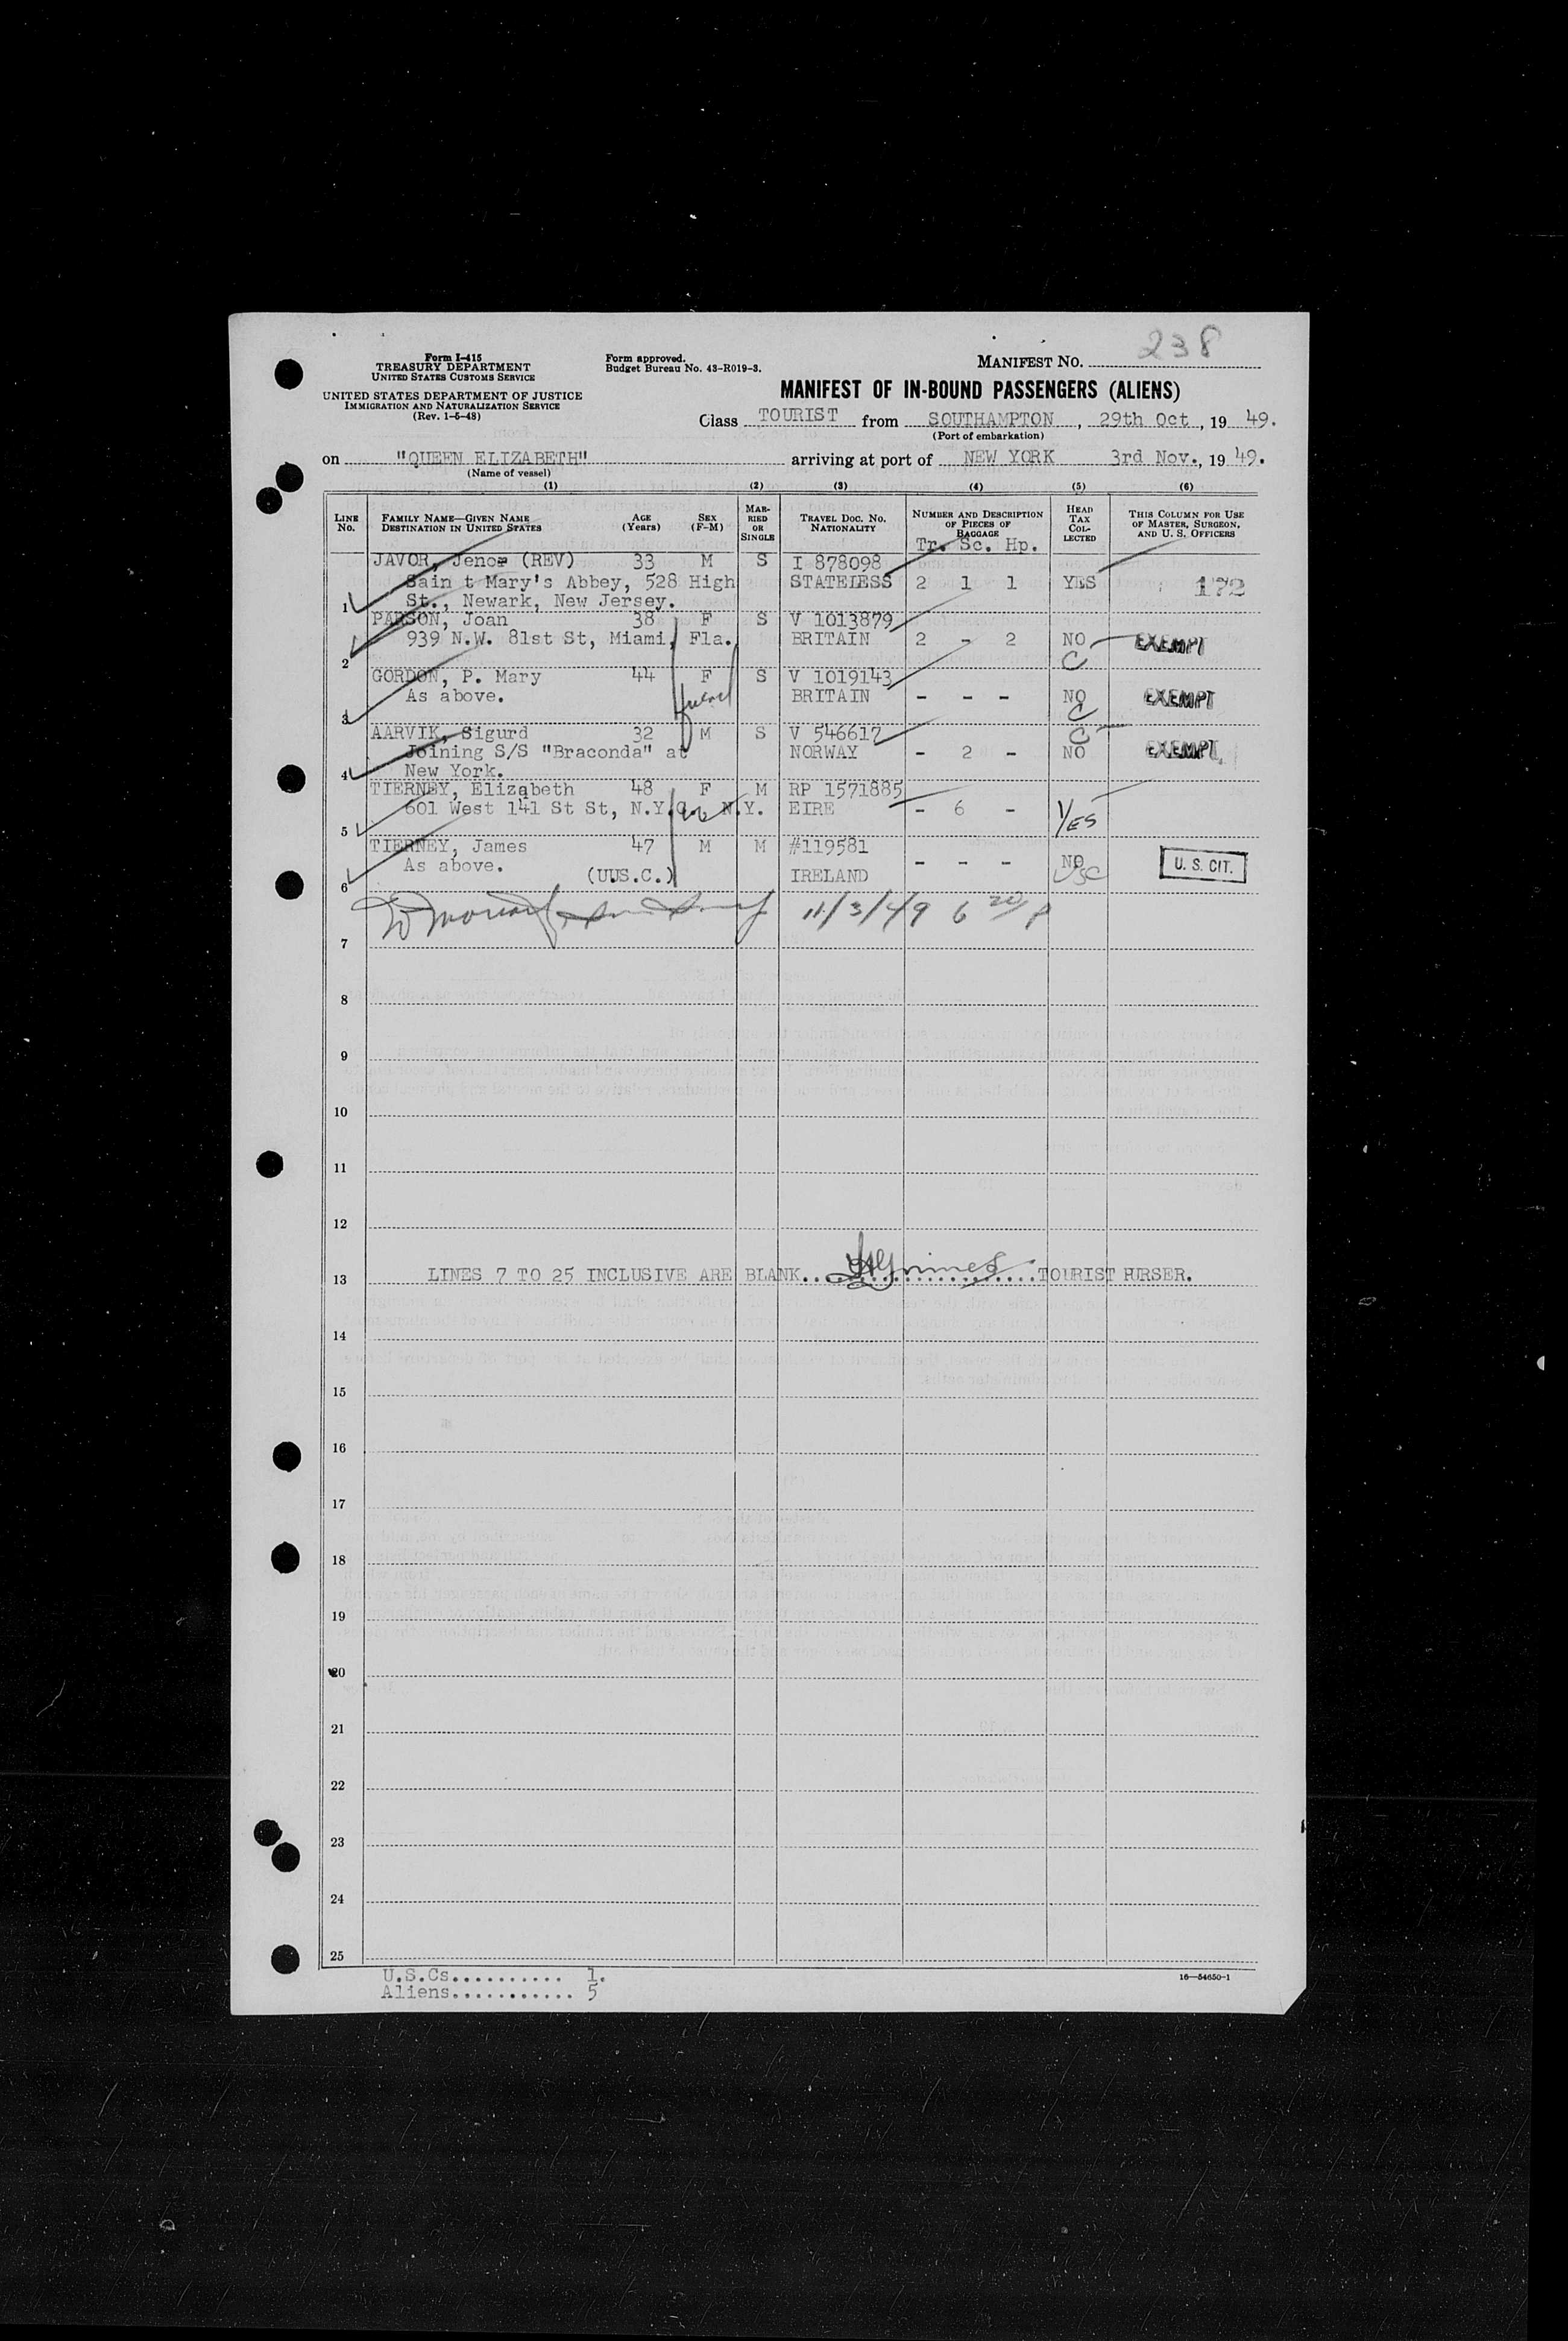 238
Form I-415
TREASURY DEPARTMENT
UNITED STATES CUSTOMS SERVICE
UNITED STATES DEPARTMENT OF JUSTICE
IMMIGRATION AND NATURALIZATION SERVICE
(Rev. 1-5-48)
Form approved.
Budget Bureau No. 43-R019-3.
MANIFEST NO.
MANIFEST OF IN-BOUND PASSENGERS (ALIENS)
Class TOURIST from SOUTHAMPTON, 29th Oct, 19 49.
(Port of embarkation)
on "QUEEN ELIZABETH" arriving at port of NEW YORK 3rd Nov., 19 49.
(Name of vessel)
(1) (2) (3) (4) (5) (6)
LINE No. FAMILY NAME—GIVEN NAME DESTINATION IN UNITED STATES AGE (Years) SEX (F-M) MARRIED OR SINGLE TRAVEL DOC. NO. NATIONALITY NUMBER AND DESCRIPTION OF PIECES OF BAGGAGE HEAD TAX COLLECTED THIS COLUMN FOR USE OF MASTER, SURGEON, AND U. S. OFFICERS
Tr. Sc. Hp.
JAVOR, Jenoe (REV) 33 M S I 878098
Sain t Mary's Abbey, 528 High STATELESS 2 1 1 YES 172
1 St., Newark, New Jersey.
PARSON, Joan 38 F S V 1013879
939 N.W. 81st St, Miami, Fla. BRITAIN 2 - 2 NO EXEMPT
2 C
GORDON, P. Mary 44 F S V 1019143
As above. BRITAIN - - - NO EXEMPT
3 C
AARVIK, Sigurd 32 M S V 546617 C
Joining S/S "Braconda" at NORWAY - 2 - NO EXEMPT
4 New York.
TIERNEY, Elizabeth 48 F M RP 1571885
601 West 141 St St, N.Y.C. N.Y. EIRE - 6 -
5 YES
TIERNEY, James 47 M M #119581
As above. - - - NO U. S. CIT.
6 (UUS.C.) IRELAND USC
11/3/49 6 20 P
7
8
9
10
11
12
13 LINES 7 TO 25 INCLUSIVE ARE BLANK. TOURIST PURSER.
14
15
16
17
18
19
20
21
22
23
24
25
U.S.Cs.......... 1.
Aliens........... 5
16—54650-1